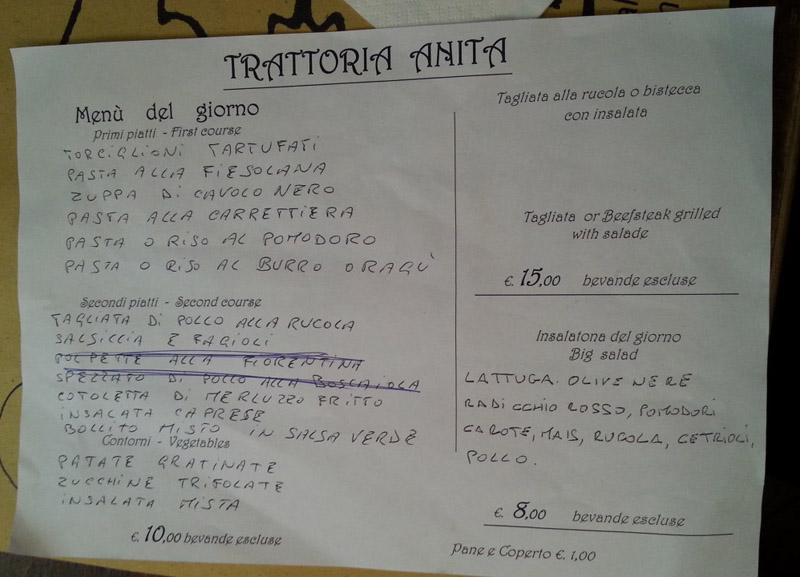 TRATTORIA ANITA
Menù del giorno
Primi piatti - First course
TORCIGLIONI TARTUFATI
PASTA ALLA FIESOLANA
ZUPPA DI CAVOLO NERO
PASTA ALLA CARRETTIERA
PASTA O RISO AL POMODORO
PASTA O RISO AL BURRO O RAGÙ
Secondi piatti - Second course
TAGLIATA DI POLLO ALLA RUCOLA
SALSICCIA E FAGIOLI
POLPETTE ALLA FIORENTINA
SPEZZATO DI POLLO ALLA BOSCAIOLA
COTOLETTA DI MERLUZZO FRITTO
INSALATA CAPRESE
BOLLITO MISTO IN SALSA VERDE
Contorni - Vegetables
PATATE GRATINATE
ZUCCHINE TRIFOLATE
INSALATA MISTA
€. 10,00 bevande escluse
Tagliata alla rucola o bistecca
con insalata
Tagliata or Beefsteak grilled
with salade
€. 15,00 bevande escluse
Insalatona del giorno
Big salad
LATTUGA. OLIVE NERE
RADICCHIO ROSSO, POMODORI
CAROTE, MAIS, RUCOLA, CETRIOLI,
POLLO.
€. 8,00 bevande escluse
Pane e Coperto €. 1,00